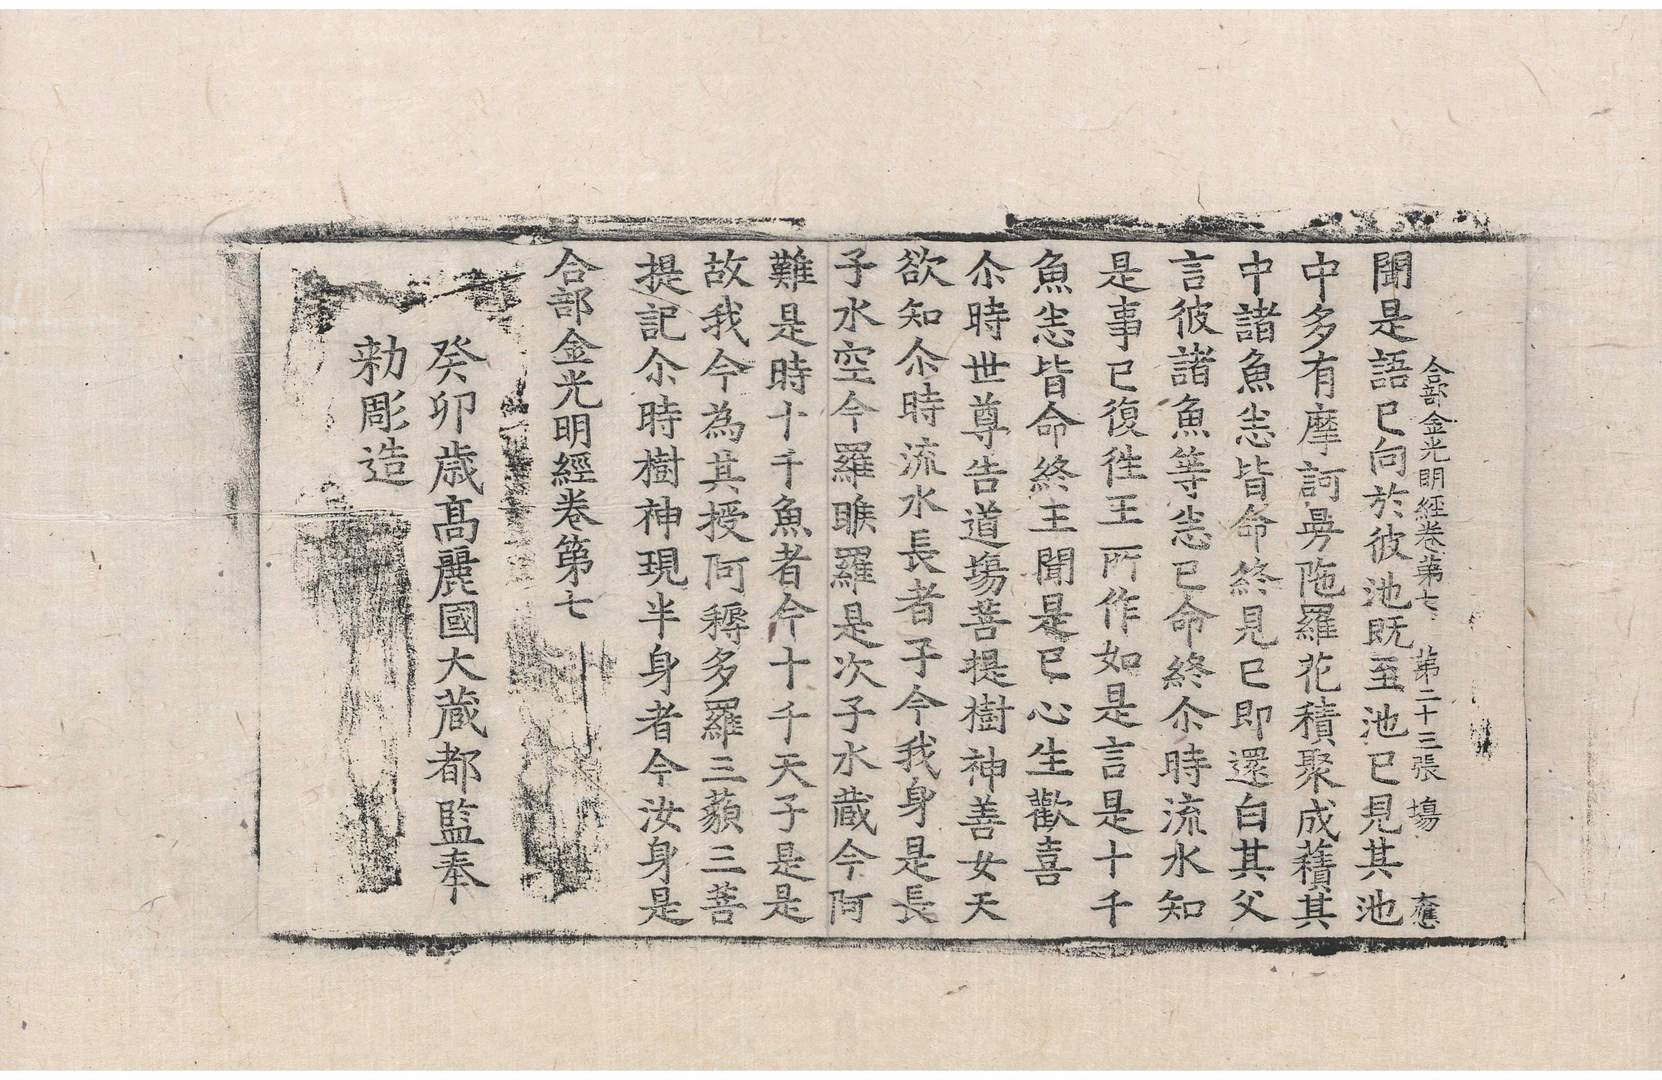 合部金光明經卷第七 第二十三張 塲
聞是語已向於彼池既至池已見其池
中多有摩訶曼陁羅花積聚成𧂐其
中諸魚悉皆命終見已即還白其父
言彼諸魚等悉已命終尒時流水知
是事已復徃王所作如是言是十千
魚悉皆命終王聞是已心生歡喜
尒時世尊告道塲菩提樹神善女天
欲知尒時流水長者子今我身是長
子水空今羅睺羅是次子水蔵今阿
難是時十千魚者今十千天子是是
故我今為其授阿耨多羅三藐三菩
提記尒時樹神現半身者今汝身是
合部金光明經卷第七
癸卯歳髙麗國大蔵都監奉
勑彫造